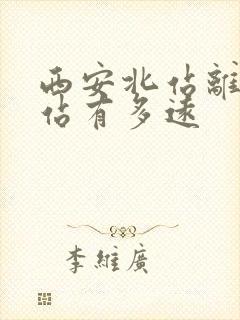 西安北佔離
佔有多遠
李維廣